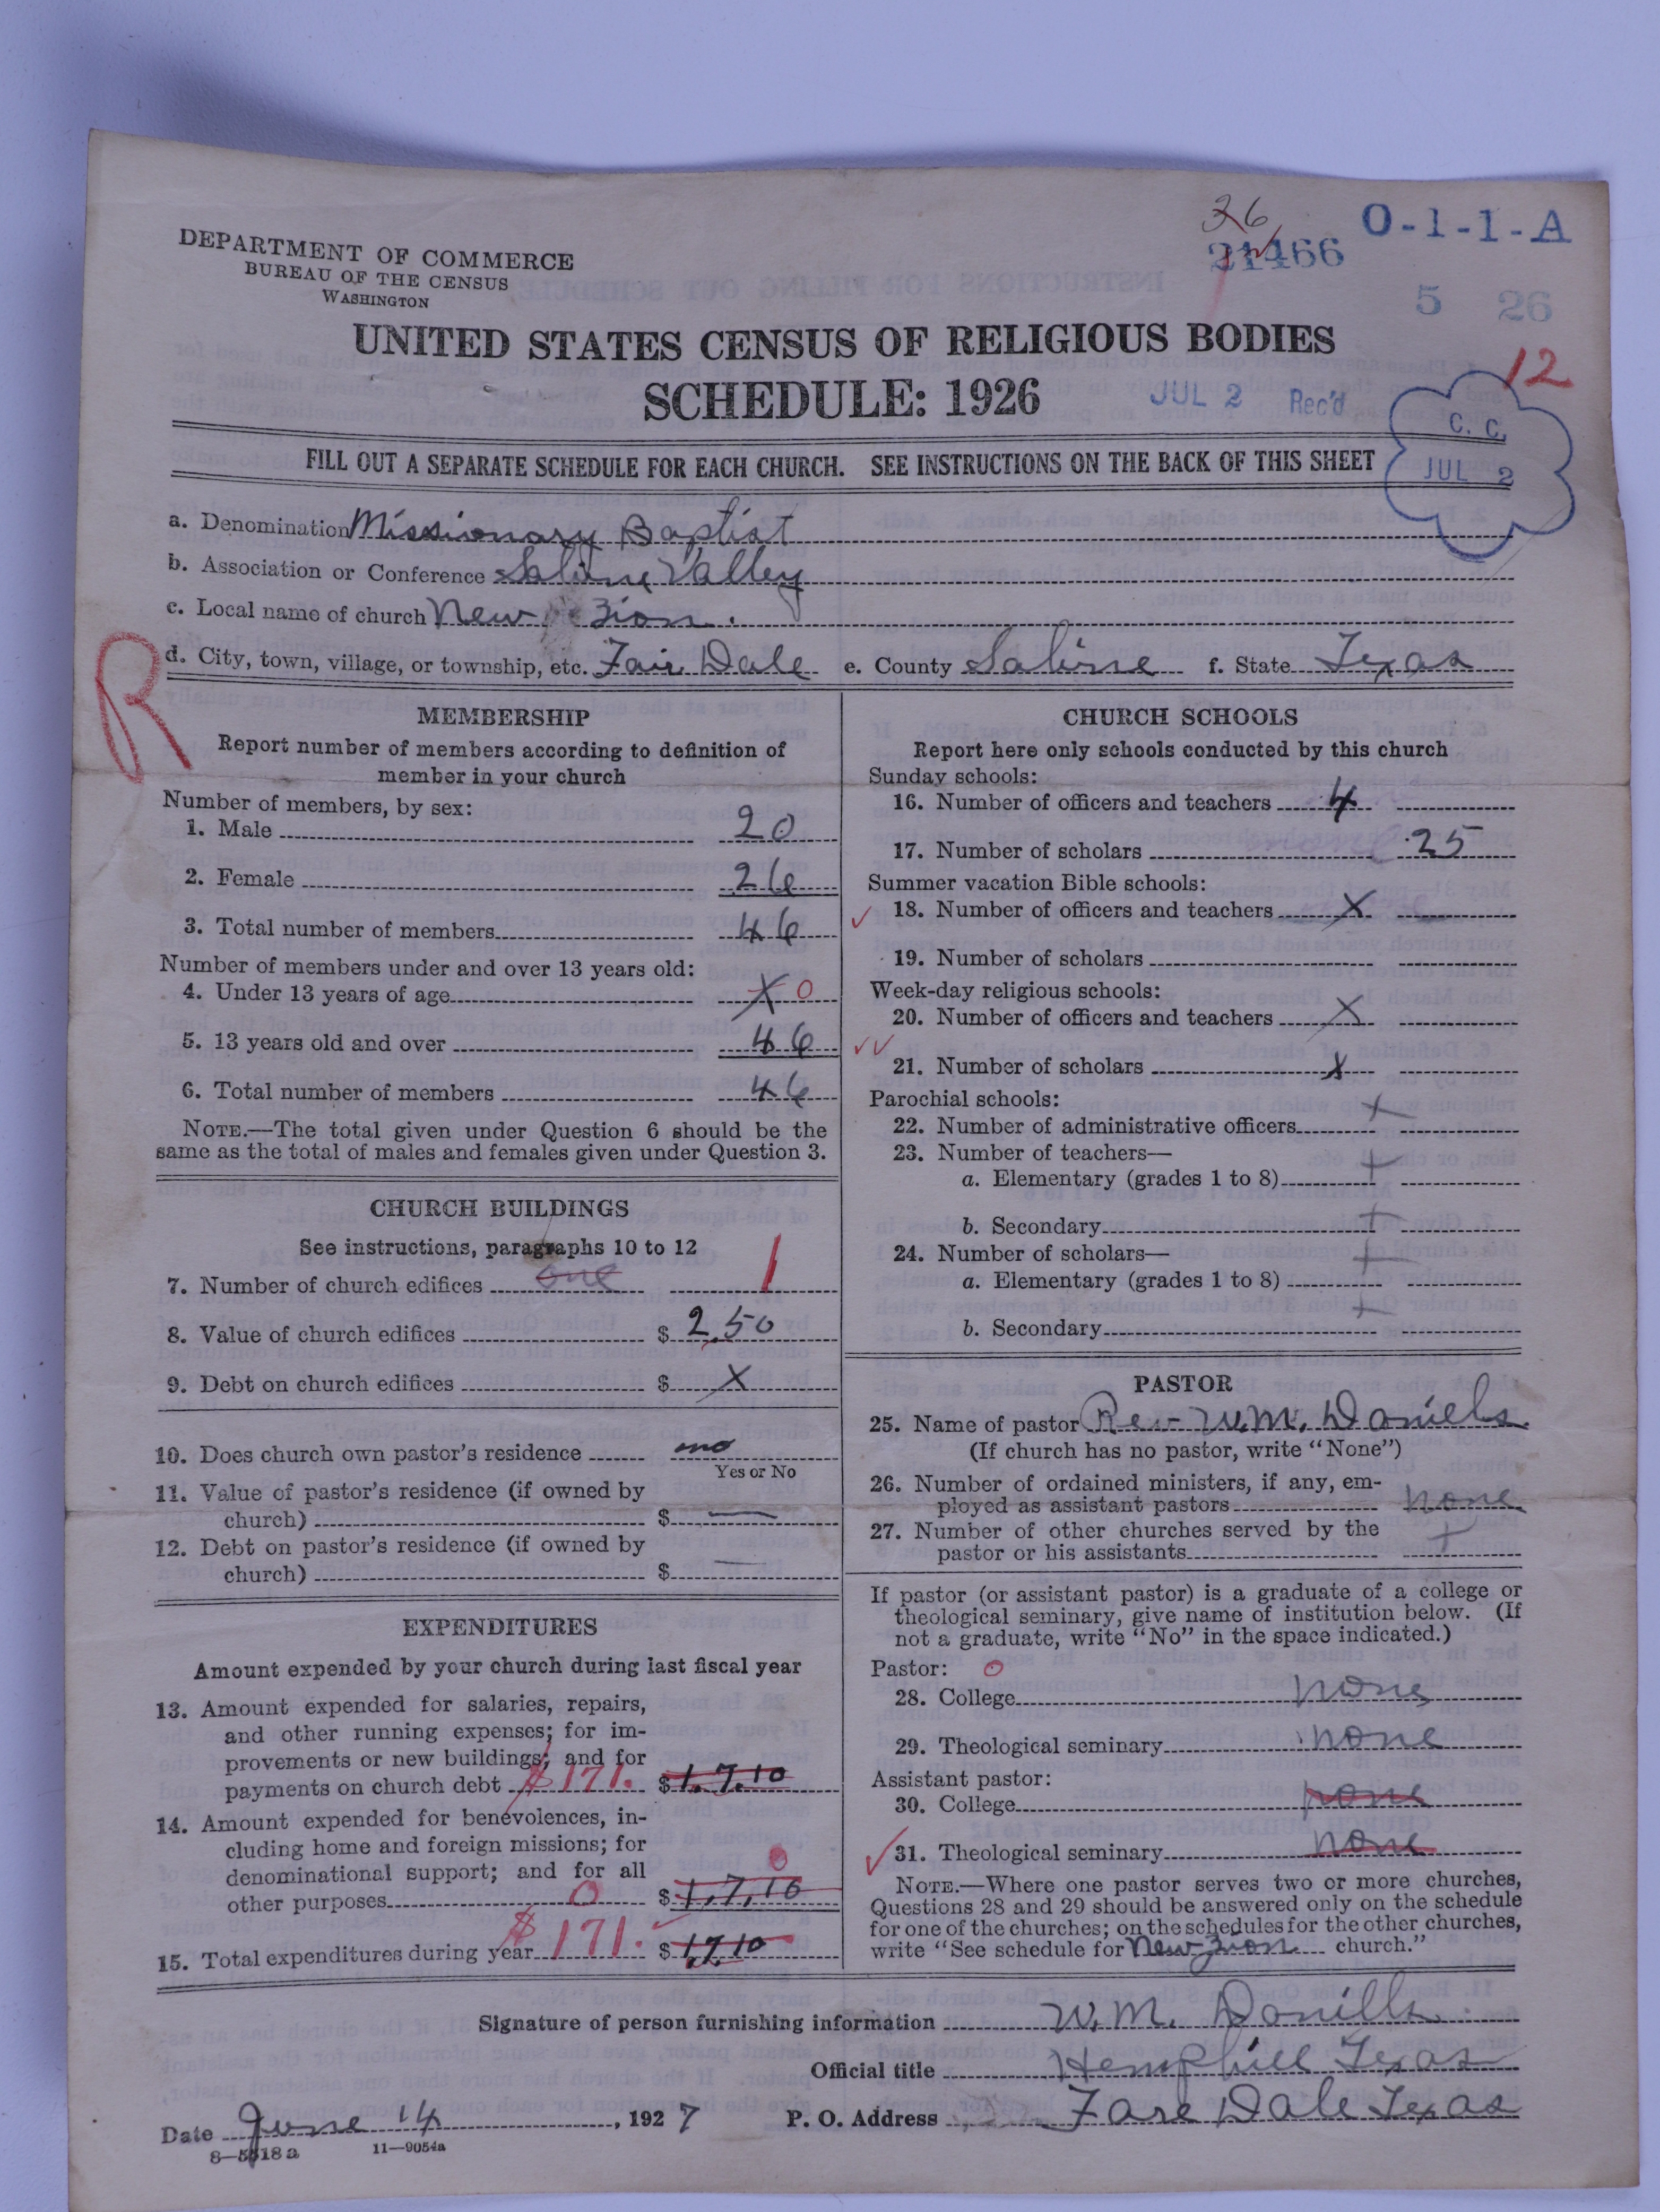 36
O-1-1-A
DEPARTMENT OF COMMERCE
BUREAU OF THE CENSUS
WASHINGTON
5 26
UNITED STATES CENSUS OF RELIGIOUS BODIES
12
SCHEDULE: 1926
JUL 2 Rec'd
C. C.
JUL 2
FILL OUT A SEPARATE SCHEDULE FOR EACH CHURCH. SEE INSTRUCTIONS ON THE BACK OF THIS SHEET
a. Denomination Missionary Baptist
b. Association or Conference Saline Valley
c. Local name of church New Zion.
R
d. City, town, village, or township, etc. Fair Dale e. County Sabine f. State Texas
MEMBERSHIP
Report number of members according to definition of
member in your church
Number of members, by sex:
1. Male 20
2. Female 26
3. Total number of members 46
Number of members under and over 13 years old:
4. Under 13 years of age X 0
5. 13 years old and over 46
6. Total number of members 46
NOTE.—The total given under Question 6 should be the
same as the total of males and females given under Question 3.
CHURCH BUILDINGS
See instructions, paragraphs 10 to 12
7. Number of church edifices one 1
8. Value of church edifices $ 2.50
9. Debt on church edifices $ X
10. Does church own pastor's residence no
Yes or No
11. Value of pastor's residence (if owned by
church) $ —
12. Debt on pastor's residence (if owned by
church) $ —
EXPENDITURES
Amount expended by your church during last fiscal year
13. Amount expended for salaries, repairs,
and other running expenses; for im-
provements or new buildings; and for
payments on church debt $171. $1.7.10
14. Amount expended for benevolences, in-
cluding home and foreign missions; for
denominational support; and for all 0
other purposes 0 $1.7.10
15. Total expenditures during year $171. $1710
CHURCH SCHOOLS
Report here only schools conducted by this church
Sunday schools:
16. Number of officers and teachers 4
17. Number of scholars 25
Summer vacation Bible schools:
18. Number of officers and teachers X
19. Number of scholars
Week-day religious schools:
20. Number of officers and teachers X
21. Number of scholars X
Parochial schools:
22. Number of administrative officers +
23. Number of teachers—
a. Elementary (grades 1 to 8) +
b. Secondary +
24. Number of scholars—
a. Elementary (grades 1 to 8) +
b. Secondary +
PASTOR
25. Name of pastor Rev W.M. Daniels
(If church has no pastor, write "None")
26. Number of ordained ministers, if any, em-
ployed as assistant pastors none
27. Number of other churches served by the
pastor or his assistants +
If pastor (or assistant pastor) is a graduate of a college or
theological seminary, give name of institution below. (If
not a graduate, write "No" in the space indicated.)
Pastor: 0
28. College none
29. Theological seminary none
Assistant pastor:
30. College none
31. Theological seminary none
NOTE.—Where one pastor serves two or more churches,
Questions 28 and 29 should be answered only on the schedule
for one of the churches; on the schedules for the other churches,
write "See schedule for New Zion church."
Signature of person furnishing information W.M. Danills
Official title Hemphill Texas
Date June 14, 1927 P. O. Address Fare Dale Texas
8—5518a 11—9054a